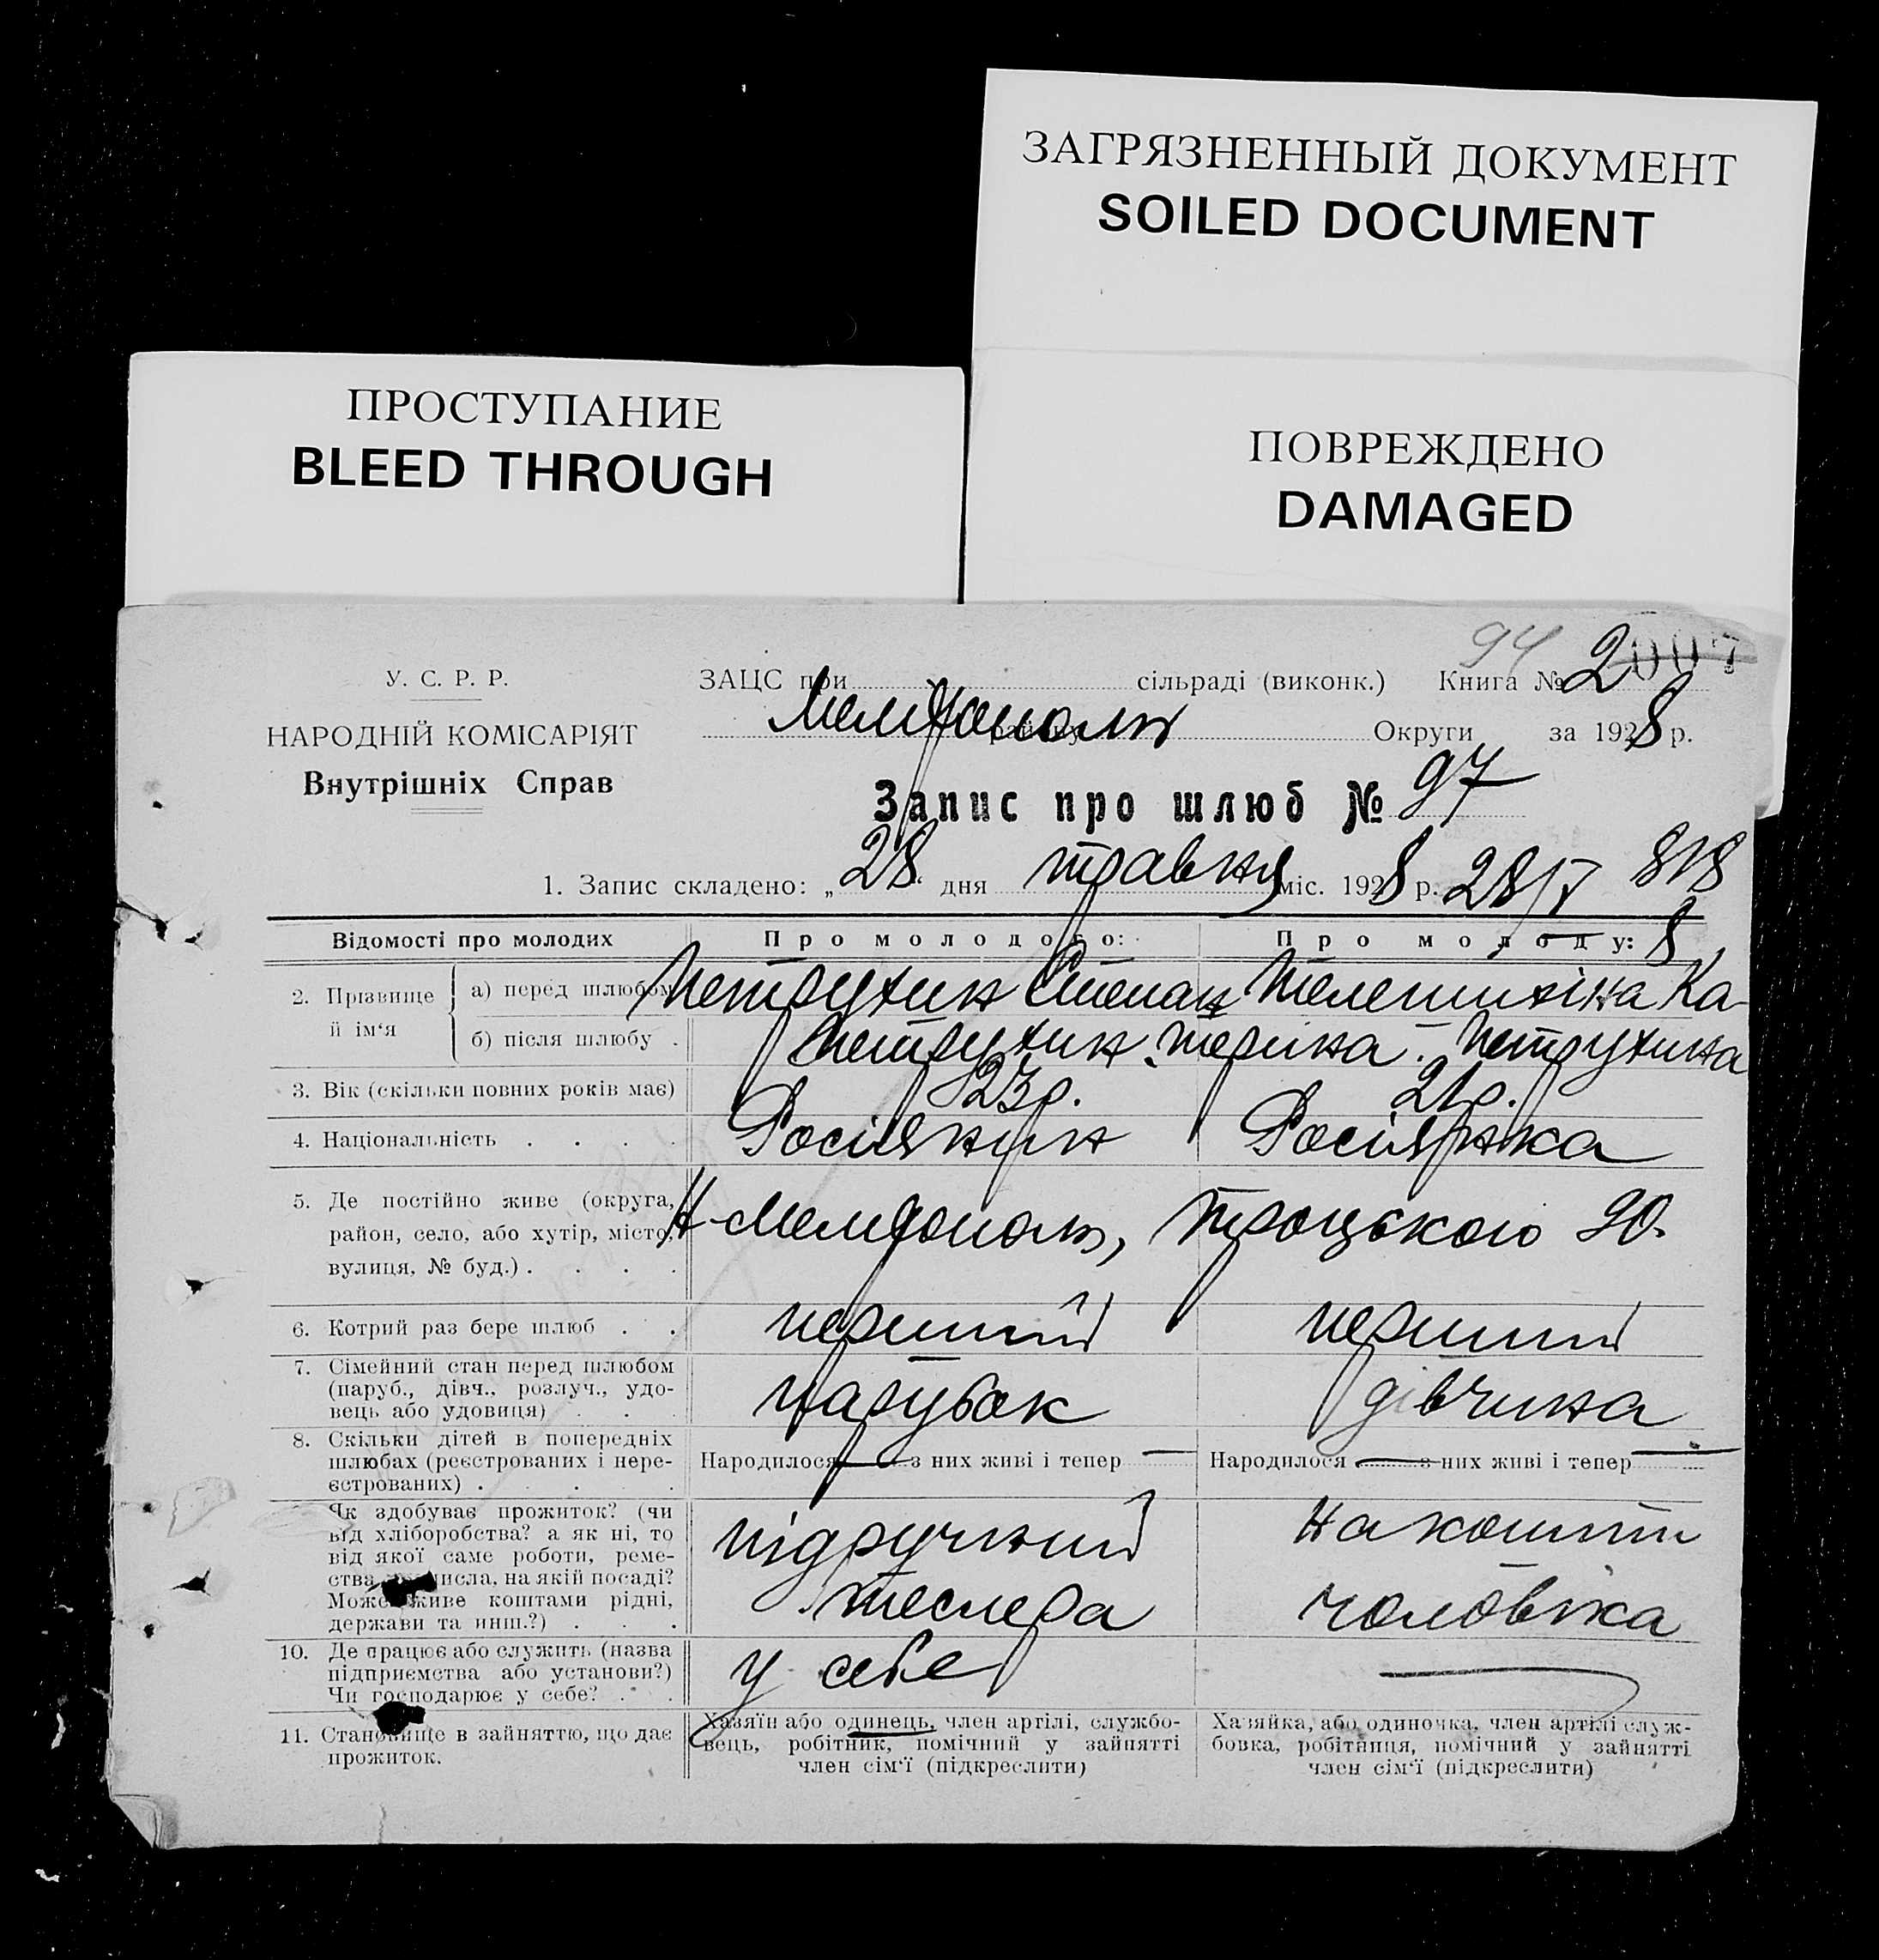 ЗАГРЯЗНЕННЫЙ ДОКУМЕНТ
SOILED DOCUMENT
ПРОСТУПАНИЕ
BLEED THROUGH
ПОВРЕЖДЕНО
DAMAGED
94
У. С. Р. Р.
НАРОДНІЙ КОМІСАРІЯТ
Внутрішніх Справ
ЗАЦС при сільраді (виконк.) Книга № 2007
Мелітополь Округи за 1928 р.
Запис про шлюб № 97
1. Запис складено: „28“ дня травня міс. 1928 р. 28/V 818
8
Відомості про молодих
Про молодого:
Про молоду:
2. Прізвище й ім‘я
а) перед шлюбом
Петрухин Степан
Телешихіна Ка-
б) після шлюбу .
Петрухин
терина. Петрухина
3. Вік (скільки повних років має)
23 р.
21 р.
4. Національність . . . .
Росіянин
Росіянка
5. Де постійно живе (округа,
район, село, або хутір, місто,
вулиця, № буд.) . . . .
Мелітополь, Троцького 20.
6. Котрий раз бере шлюб . .
перший
перший
7. Сімейний стан перед шлюбом
(паруб., дівч., розлуч., удо-
вець або удовиця) . . .
парубок
дівчина
8. Скільки дітей в попередніх
шлюбах (реєстрованих і нере-
єстрованих) . . . . .
Народилося — з них живі і тепер —
Народилося — з них живі і тепер —
Як здобуває прожиток? (чи
від хліборобства? а як ні, то
від якої саме роботи, реме-
ства, числа, на якій посаді?
Може живе коштами рідні,
держави та инш.?) . . .
підручний
теслера
на кошти
чоловіка
10. Де працює або служить (назва
підприємства або установи?)
Чи господарює у себе? . .
у себе
—
11. Становище в зайняттю, що дає
прожиток.
Хазяїн або одинець, член артілі, службо-
вець, робітник, помічний у зайнятті
член сім‘ї (підкреслити)
Хазяйка, або одиночка, член артілі служ-
бовка, робітниця, помічний у зайнятті
член сім‘ї (підкреслити)